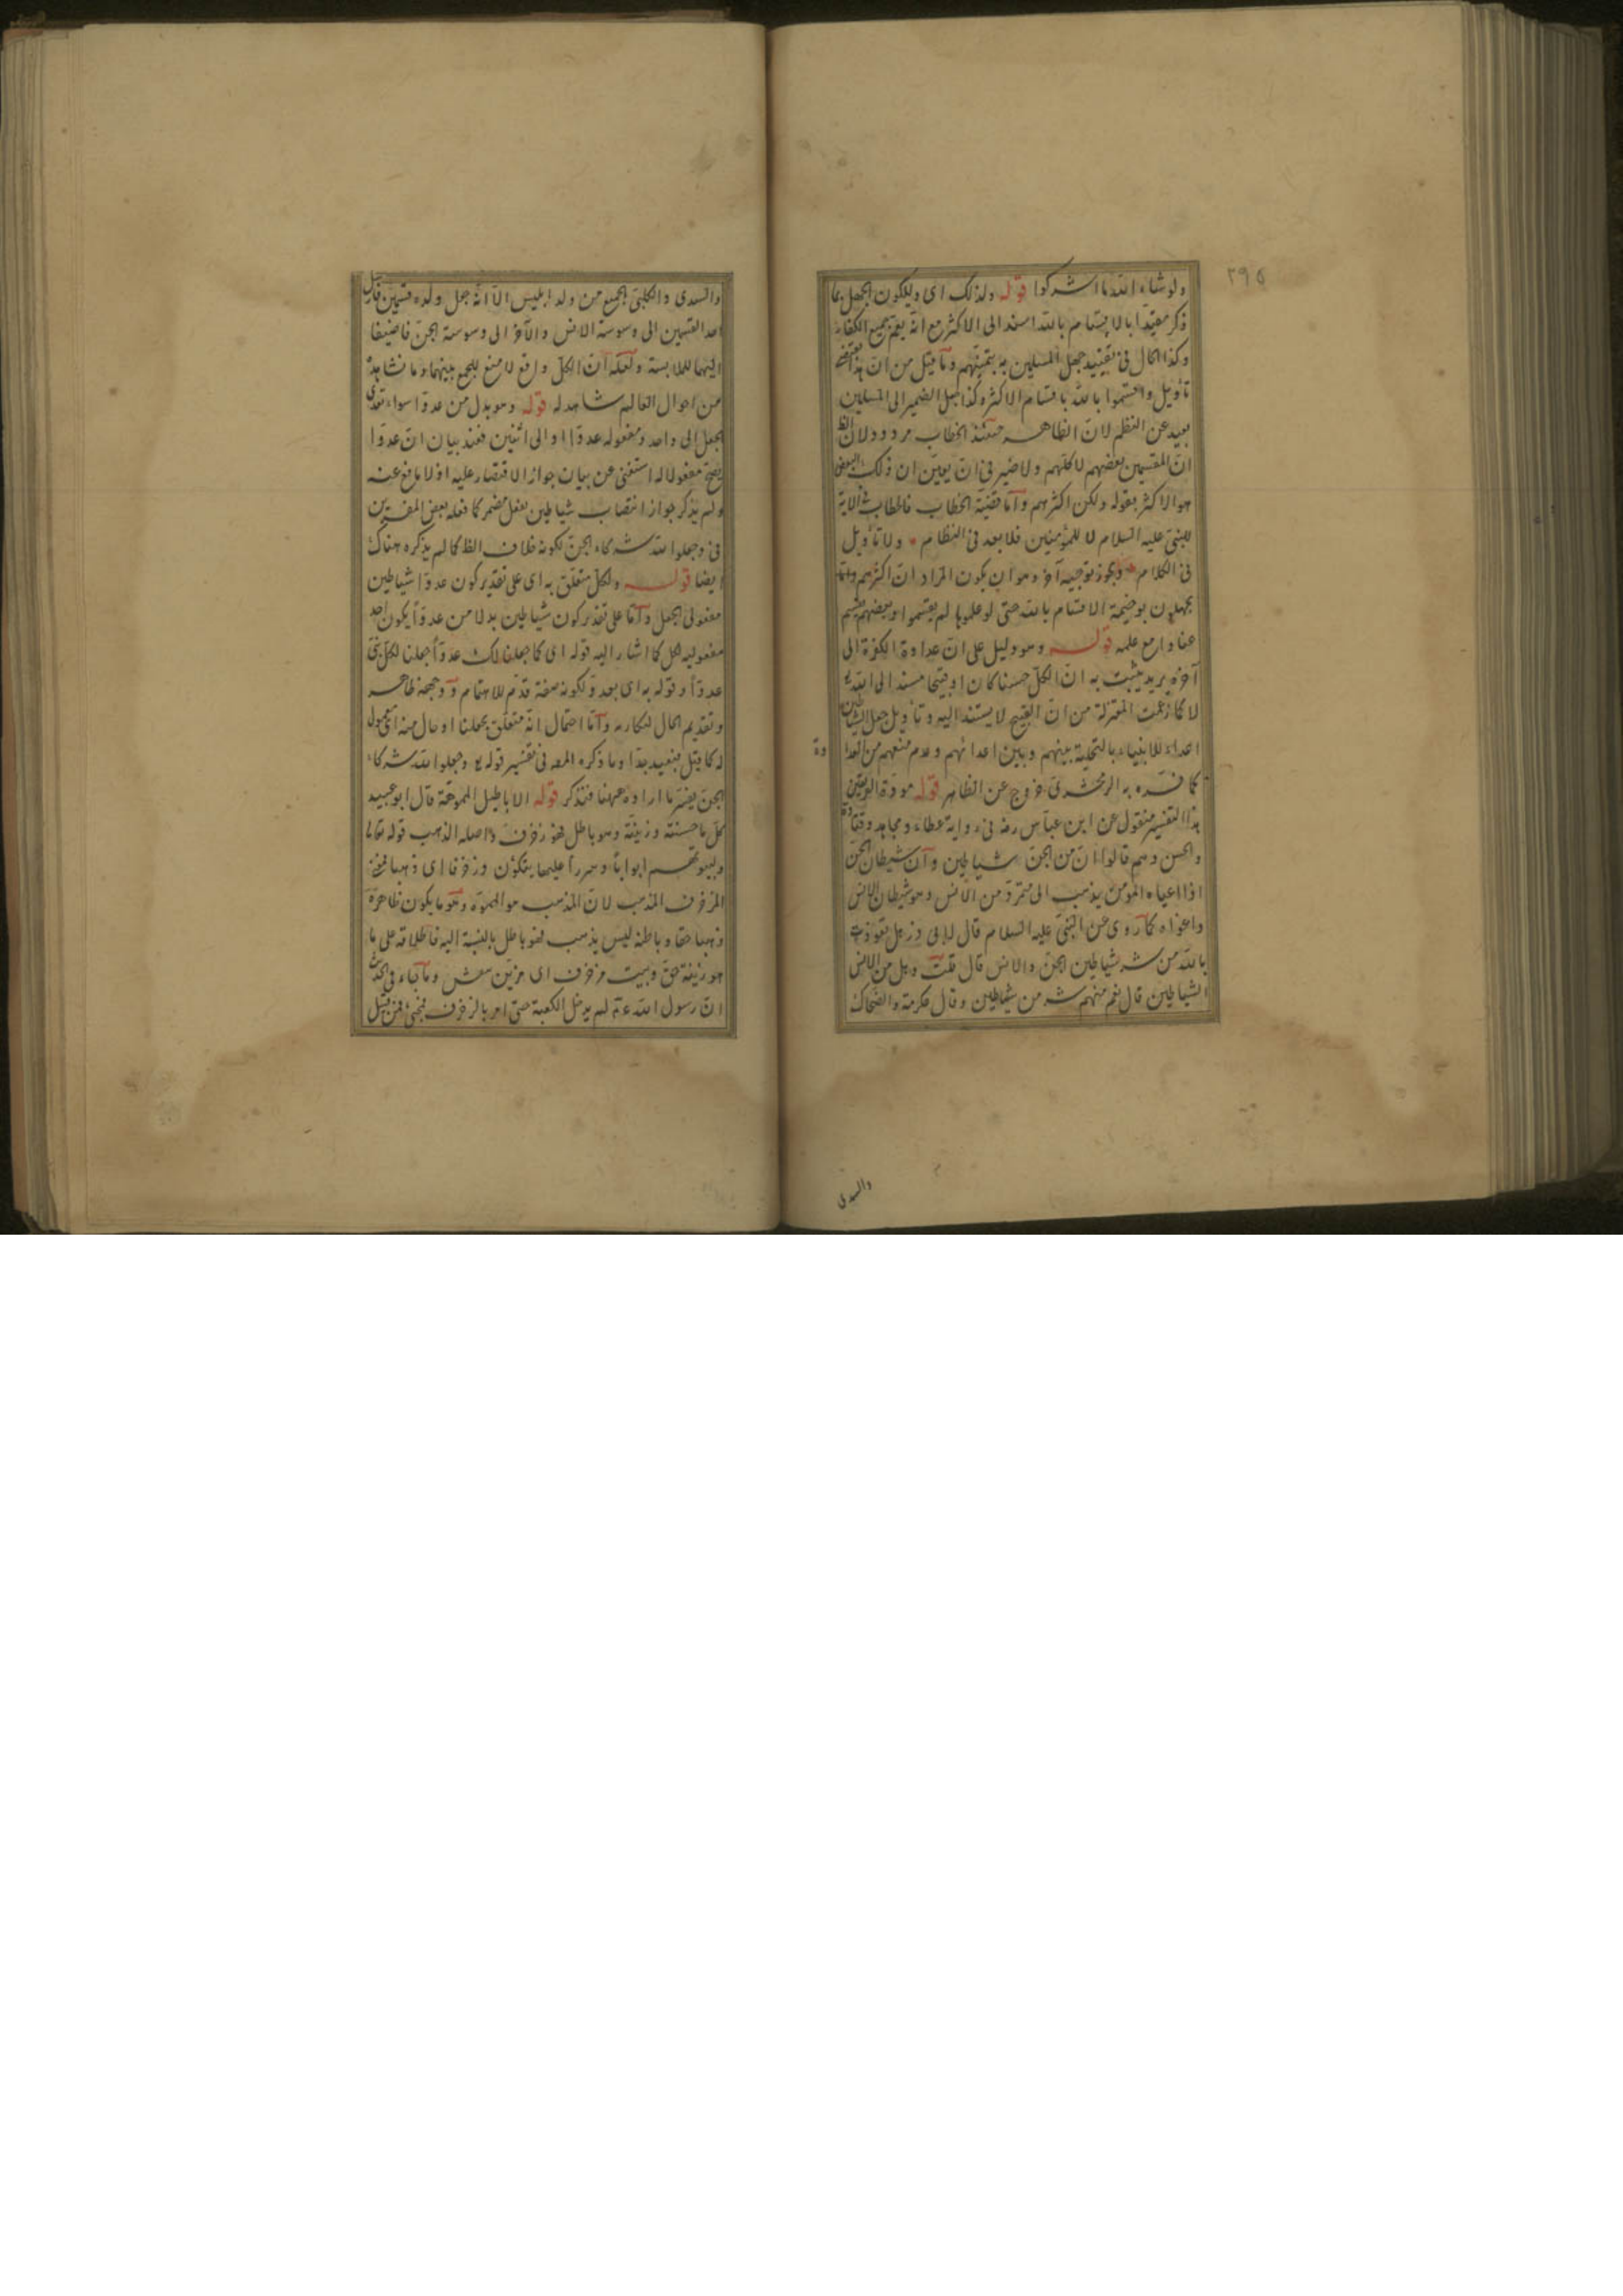 ٢٩٥
ولو شاء الله ما اشركوا قوله ولذلك اى ولكون الجهل بما
ذكر مقيدا بالاقسام بالله اسند الى الاكثر مع انه يعم جميع الكفار
وكذا الحال فى تقييد جهل المسلمين به بتمنيهم وما قيل من ان هذا يقتضى
تأويل واقسموا بالله باقسام الاكثر وكذا جعل الضمير الى المسلمين
بعيد عن النظم لان الظاهر حينئذ الخطاب مردود لان الظ
ان المقسمين بعضهم لا كلهم ولا ضير فى ان يعين ان ذلك البعض
هو الاكثر بقوله ولكن اكثرهم واما قضية الخطاب فالخطاب فى الآية
للنبى عليه السلام لا للمؤمنين فلا بعد فى النظام ولا تأويل
فى الكلام ويجوز توجيه آخر وهو ان يكون المراد ان اكثرهم
يجهلون بوخيمة الاقسام بالله حتى لو علموها لم يقسموا وبعضهم يقسم
عنادا مع علمه قوله وهو دليل على ان عداوة الكفرة الى
آخره يريد يثبت به ان الكل حسنا كان او قبيحا مسند الى الله تع
لا كما زعمت المعتزلة من ان القبيح لا يستند اليه وتأويل جعل الشياطين
اعداء للانبياء بالتخلية بينهم وبين اعدائهم وعدم منعهم من العدا
وة
كما فسره به الزمخشرى خروج عن الظاهر قوله مردة الفريقين
هذا التفسير منقول عن ابن عباس رضه فى رواية عطاء ومجاهد وقتادة
والحسن وهم قالوا ان من الجن شياطين وان شيطان الجن
اذا اعياه المؤمن يذهب الى متمرد من الانس وهو شيطان الانس
واغواه كما روى عن النبى عليه السلام قال لابى ذر هل تعوذت
بالله من شر شياطين الجن والانس قال قلت وهل من الانس
الشياطين قال نعم منهم شر من شياطين وقال عكرمة والضحاك
والسدى
والسدى والكلبى الجميع من ولد ابليس الا انه جعل ولده قسمين فارسل
احد القسمين الى وسوسة الانس والآخر الى وسوسة الجن فاضيفا
اليهما للملابسة ولعله ان الكل واقع لا منع للجمع بينهما وما نشاهد
من احوال العالم شاهد له قوله وهو بدل من عدوا سواء تعدى
الجعل الى واحد ومفعوله عدوا او الى اثنين فعند بيان ان عدوا
يصح مفعولا له استغنى عن بيان جواز الاقتصار عليه اذ لا مانع عنه
ولم يذكر جواز انتصاب شياطين بفعل مضمر كما فعله بعض المفسرين
فى وجعلوا لله شركاء الجن لكونه خلاف الظ كما لم يذكره هناك
ايضا قوله ولكل متعلق به اى على تقدير كون عدوا شياطين
مفعولى الجعل واما على تقدير كون شياطين بدلا من عدوا يكون احد
مفعوليه لكل كما اشار اليه قوله اى كما جعلنا لك عدوا جعلنا لكل نبى
عدوا وقوله به اى بعدو لكونه صفة قدم للاهتمام ووجهه ظاهر
وتقديم الحال لنكارته واما احتمال انه متعلق بجعلنا او حال منه
له كما قيل فبعيد جدا وما ذكره المصه فى تفسير قوله تع وجعلوا لله شركاء
الجن يفسر ما اراده ههنا فتذكر قوله الاباطيل المموهة قال ابو عبيد
كل ما حسنته وزينته وهو باطل فهو زخرف واصله الذهب قوله تعالى
ولبيوتهم ابوابا وسررا عليها يتكؤن وزخرفا اى ذهبا فمعنى
المزخرف المذهب لان المذهب هو المموه وهو ما يكون ظاهره
ذهبا حقا وباطنه ليس بذهب فهو باطل بالنسبة اليه فاطلاقه على ما
هو زينة حق وبيت مزخرف اى مزين منقش وما جاء فى الحديث
ان رسول الله ءم لم يدخل الكعبة حتى امر بالزخرف فنحى فمن قبيل